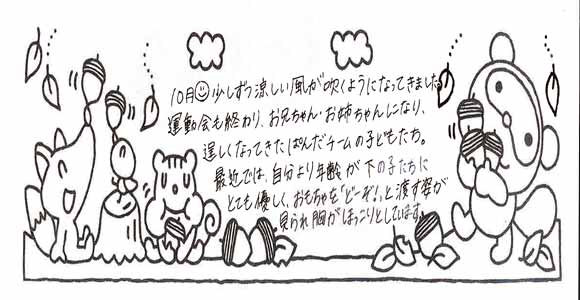 10月☺少しずつ涼しい風が吹くようになってきました。
運動会も終わり、お兄ちゃん・お姉ちゃんになり、
逞しくなってきたぱんだチームの子どもたち。
最近では、自分より年齢が下の子たちに
とても優しく、おもちゃを「どーぞ!」と渡す姿が
見られ胸がほっこりとしています。